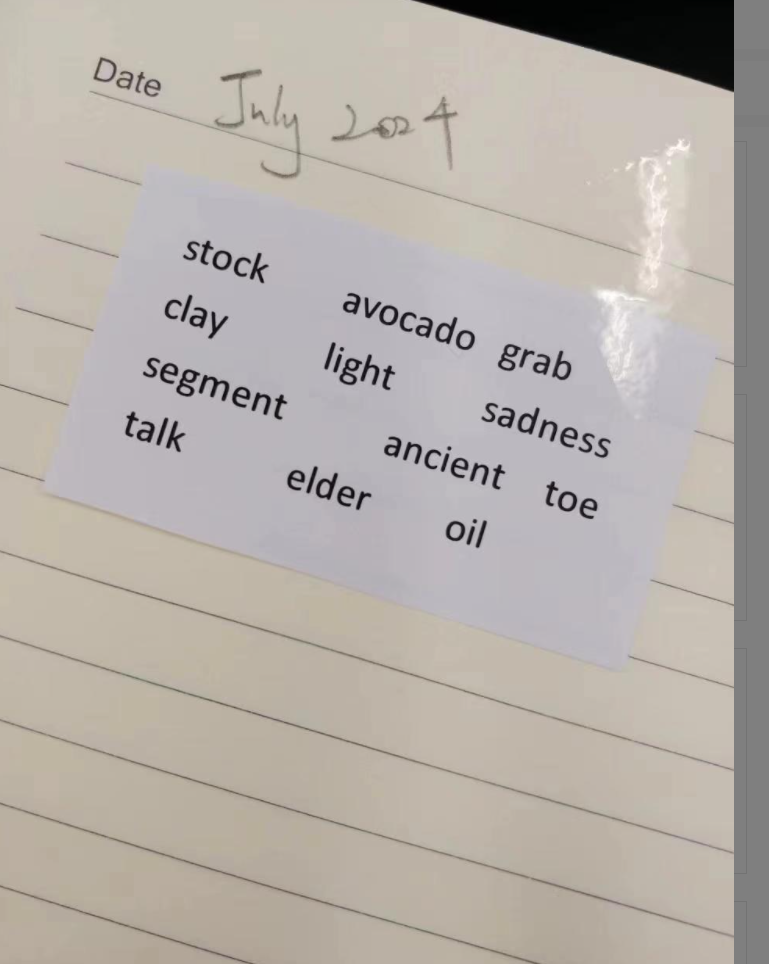 Date July 2024
stock avocado grab
clay light sadness
segment ancient toe
talk elder oil